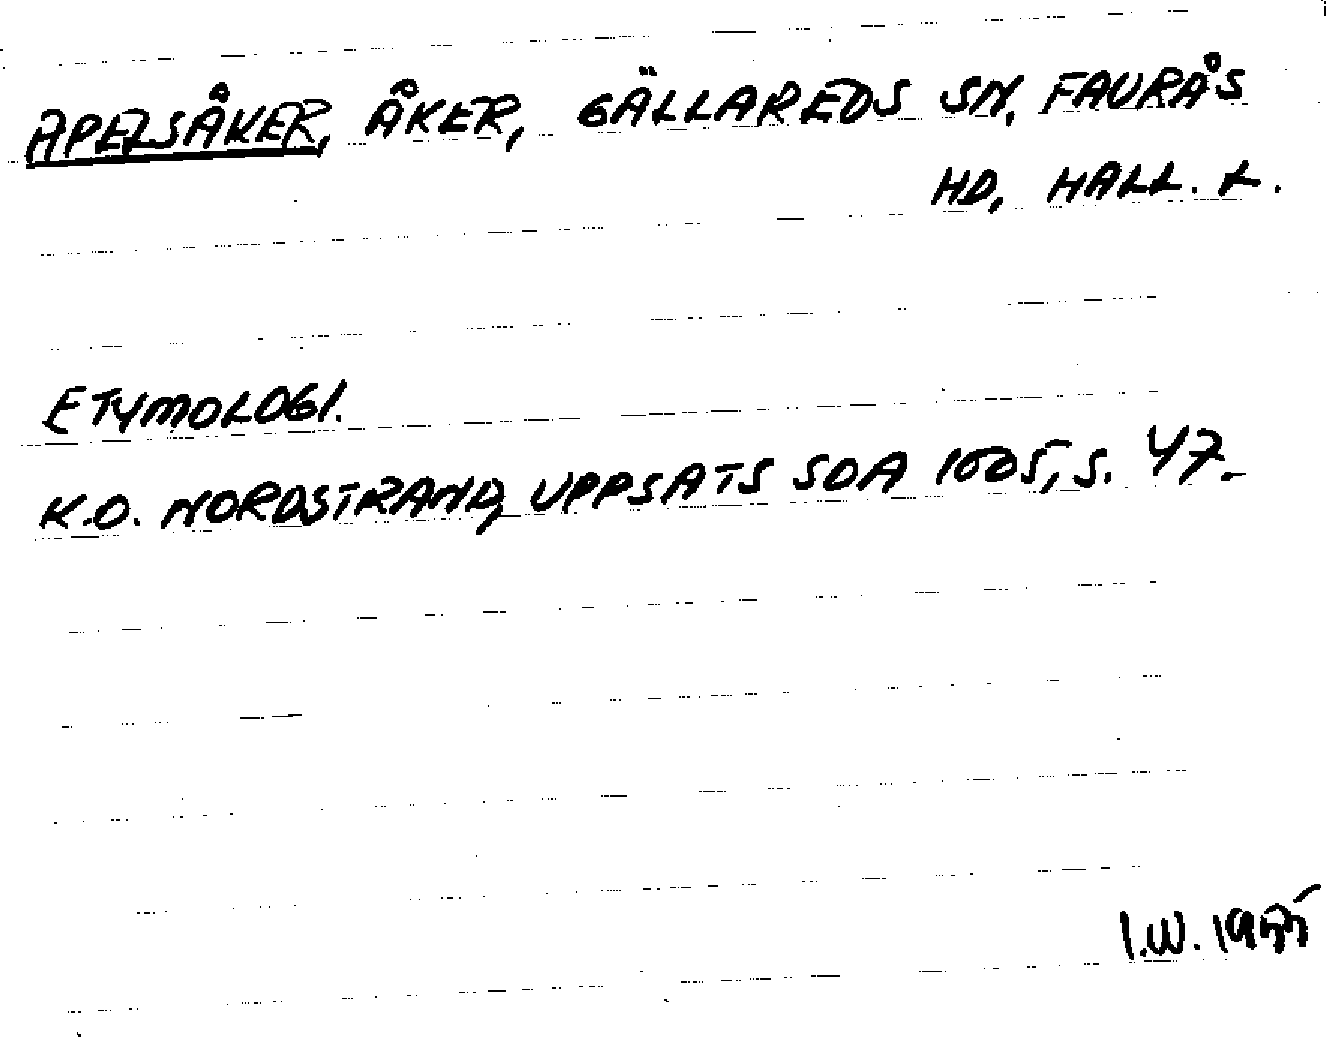 APELSÅKER, ÅKER, GÄLLAREDS SN. FAURÅS
HD, HALL. L.
ETYMOLOGI.
K.O. NORDSTRAND, UPPSATS SOA 1005, S. 47.
I.W.